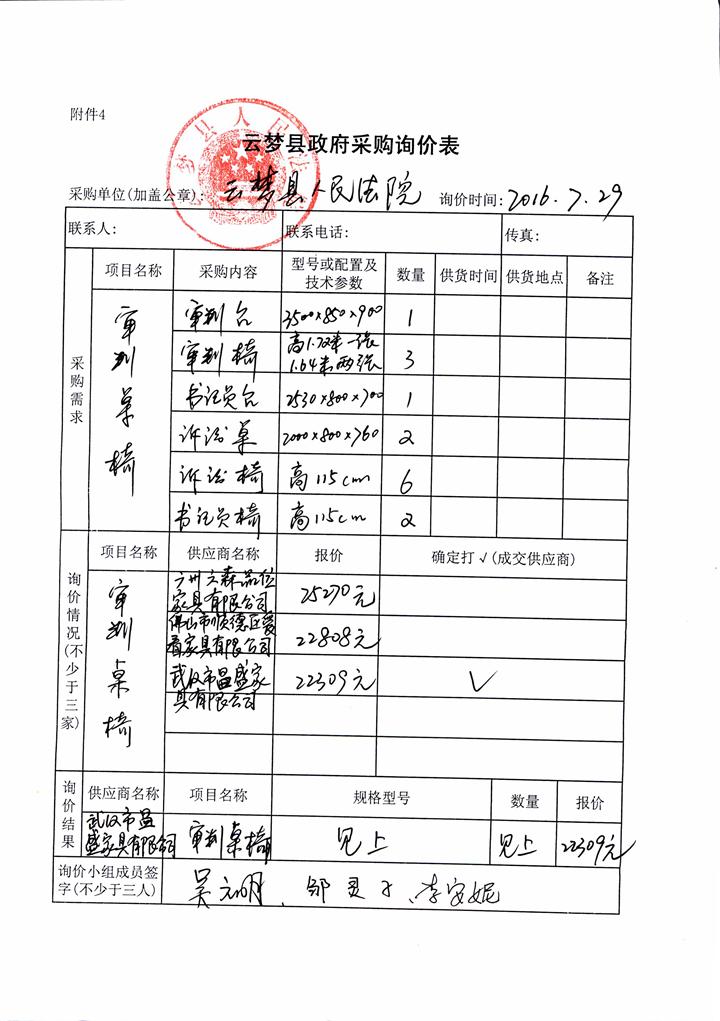 附件4
云梦县政府采购询价表
采购单位(加盖公章): 云梦县人民法院 询价时间: 2016.7.29
联系人: 联系电话: 传真:
采购需求 项目名称 采购内容 型号或配置及技术参数 数量 供货时间 供货地点 备注
审判桌椅 审判台 3500×850×900 1
审判椅 高1.72米一张 1.64米两张 3
书记员台 2530×800×700 1
诉讼桌 2000×800×760 2
诉讼椅 高115cm 6
书记员椅 高115cm 2
询价情况(不少于三家) 项目名称 供应商名称 报价 确定打√(成交供应商)
审判桌椅 广州立森品位家具有限公司 25270元
佛山市顺德区爱着家具有限公司 22808元
武汉市昌盛家具有限公司 22309元 √
询价结果 供应商名称 项目名称 规格型号 数量 报价
武汉市昌盛家具有限公司 审判桌椅 见上 见上 22309元
询价小组成员签字(不少于三人) 李安妮